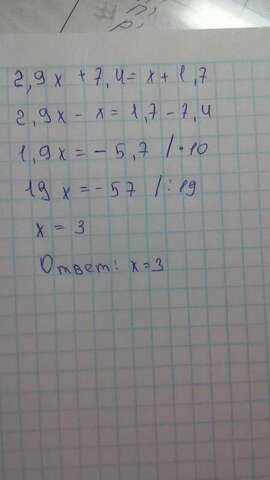 2,9x + 7,4 = x + 1,7
2,9x - x = 1,7 - 7,4
1,9x = - 5,7 / · 10
19x = - 57 / : 19
x = 3
Ответ: x = 3